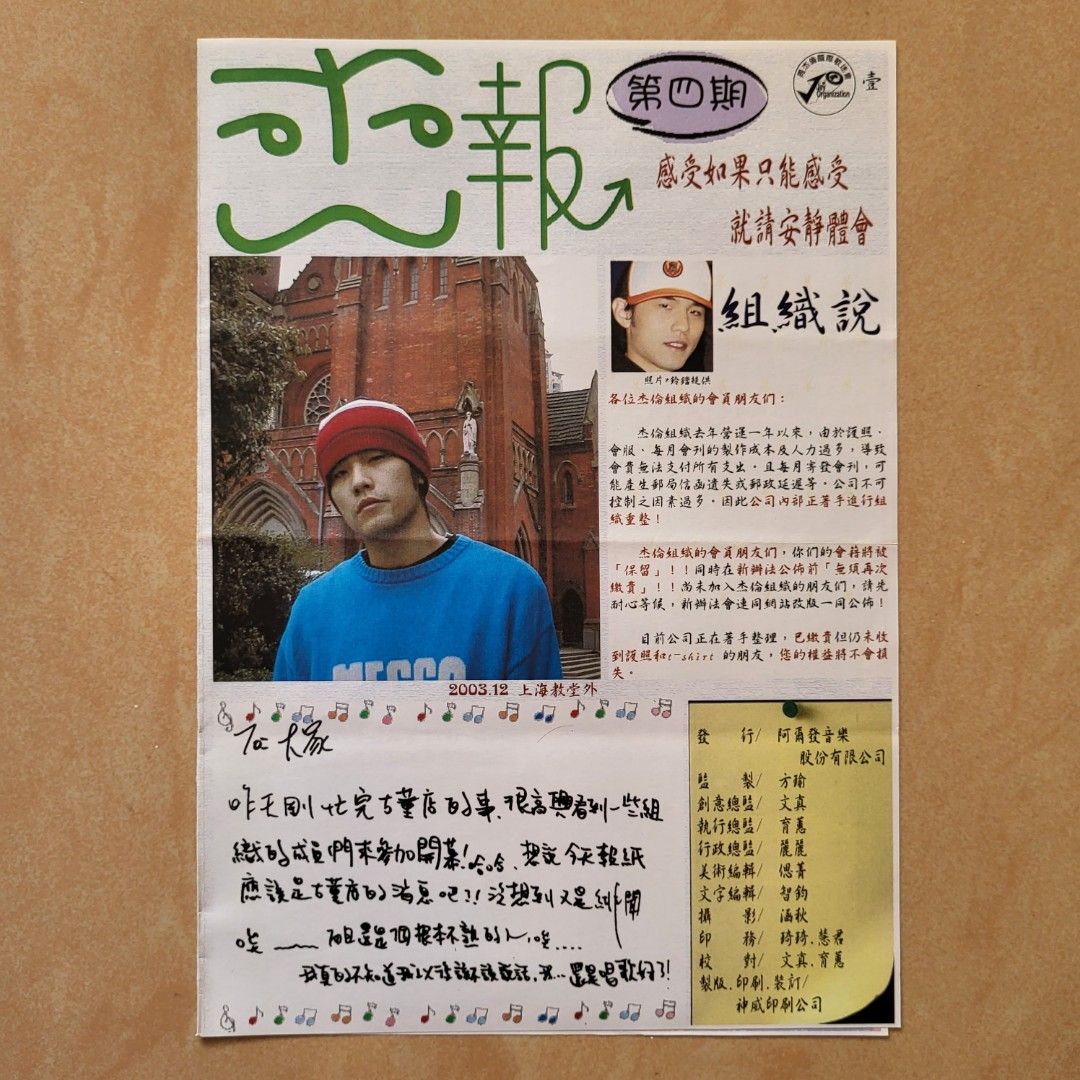 報
第四期
周杰倫國際歌迷會
Jay Organization
壹
感受如果只能感受
就請安靜體會
組織說
照片*鈴鐺提供
各位杰倫組織的會員朋友們：
杰倫組織去年營運一年以來，由於護照、
會服、每月會刊的製作成本及人力過多，導致
會費無法支付所有支出。且每月寄發會刊，可
能產生郵局信函遺失或郵政延遲等。公司不可
控制之因素過多。因此公司內部正著手進行組
織重整！
杰倫組織的會員朋友們，你們的會籍將被
「保留」！！同時在新辦法公佈前「無須再次
繳費」！！尚未加入杰倫組織的朋友們，請先
耐心等候，新辦法會連同網站改版一同公佈！
目前公司正在著手整理，已繳費但仍未收
到護照和t-shirt 的朋友，您的權益將不會損
失。
2003.12 上海教堂外
To 大家
昨天剛忙完古董店的事，很高興看到一些組
織的成員們來參加開幕！哈哈，想說今天報紙
應該是古董店的消息吧？！沒想到又是緋聞
唉～ 而且還是個根本不熟的人，唉....
我真的不知道我以後該不該說話，我... 還是唱歌好了！
發 行/ 阿爾發音樂
股份有限公司
監 製/ 方瑜
創意總監/ 文真
執行總監/ 育蕙
行政總監/ 麗麗
美術編輯/ 偲菁
文字編輯/ 智鈞
攝 影/ 涵秋
印 務/ 琦琦.慧君
校 對/ 文真.育蕙
製版.印刷.裝訂/
神威印刷公司